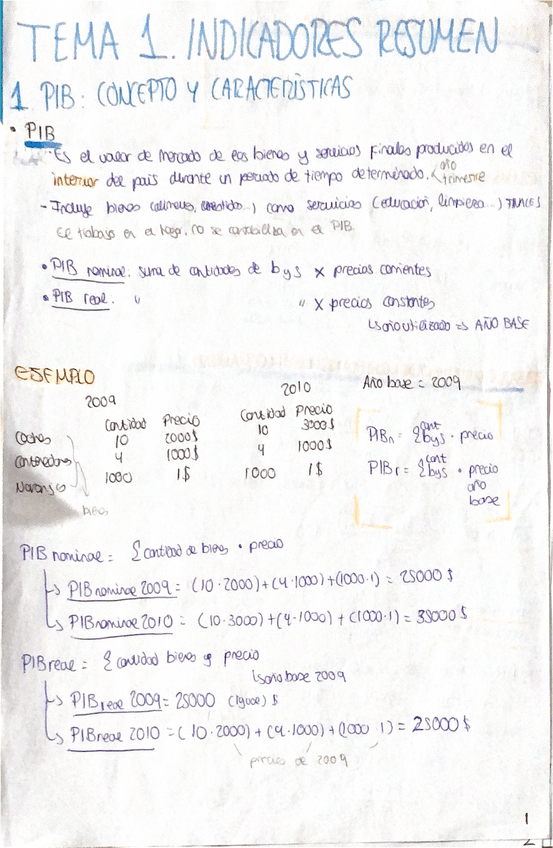 TEMA 1. INDICADORES RESUMEN
1 PIB: CONCEPTO Y CARACTERÍSTICAS
• PIB
· Es el valor de mercado de los bienes y servicios finales producidos en el
interior del país durante un periodo de tiempo determinado. < año
trimestre
- Incluye bienes (alimentos, vestido...) como servicios (educación, limpieza...) FINALES
El trabajo en el hogar, no se contabiliza en el PIB
• PIB nominal: suma de cantidades de b y s x precios corrientes
• PIB real. " " x precios constantes
↳ año utilizado => AÑO BASE
EJEMPLO
2009 2010 Año base = 2009
Cantidad Precio Cantidad Precio
Coches 10 2000$ 10 3000$
Ordenadores 4 1000$ 4 1000$
Naranjas 1000 1$ 1000 1$
bienes
PIBn = Σ cant bys · precio
PIBr = Σ cant bys · precio
año
base
PIB nominal = Σ cantidad de bienes · precio
↳ PIB nominal 2009 = (10·2000)+(4·1000)+(1000·1) = 25000 $
↳ PIB nominal 2010 = (10·3000)+(4·1000)+(1000·1) = 35000 $
PIB real = Σ cantidad bienes y precio
↳ año base 2009
↳ PIB real 2009 = 25000 (igual) $
↳ PIB real 2010 = (10·2000)+(4·1000)+(1000·1) = 25000 $
precios de 2009
1
2